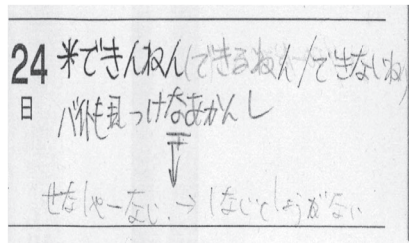 24 米できんねん(できるねん/できないねん
日 バイトも見っけなあかんし
せなしゃーない.→しないとしょうがない